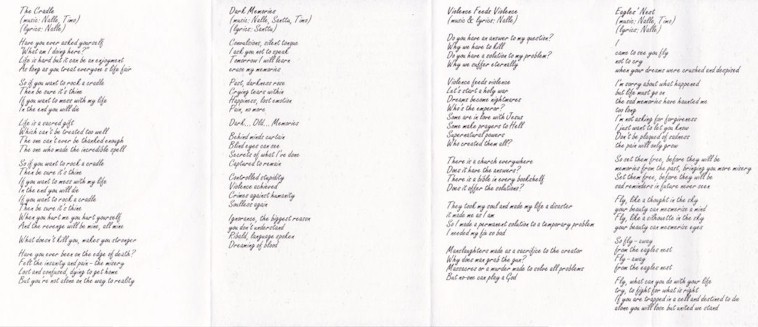 The Cradle
(music: Nalle, Timo)
(lyrics: Nalle)
Have you ever asked yourself
"What am I doing here?"
Life is hard but it can be an enjoyment
As long as you treat everyone's life fair
So if you want to rock a cradle
Then be sure it's thine
If you want to mess with my life
In the end you will die
Life is a sacred gift
Which can't be treated too well
The one can't ever be thanked enough
The one who made the incredible spell
So if you want to rock a cradle
Then be sure it's thine
If you want to mess with my life
In the end you will die
If you want to rock a cradle
Then be sure it's thine
When you hurt me you hurt yourself
And the revenge will be mine, all mine
What doesn't kill you, makes you stronger
Have you ever been on the edge of death?
Felt the insanity and pain - the misery
Lost and confused, dying to get home
But you're not alone on the way to reality
Dark Memories
(music: Nalle, Santtu, Timo)
(lyrics: Santtu)
Convulsions, silent tongue
I ask you not to speak
Tomorrow I will learn
erase my memories
Past, darkness rose
Crying tears within
Happiness, lost emotion
Pain, no more
Dark... Old... Memories
Behind minds curtain
Blind eyes can see
Secrets of what I've done
Captured to remain
Controlled stupidity
Violence achieved
Crimes against humanity
Soulless again
Ignorance, the biggest reason
you don't understand
Ribald, language spoken
Dreaming of blood
Violence Feeds Violence
(music & lyrics: Nalle)
Do you have an answer to my question?
Why we have to kill
Do you have a solution to my problem?
Why we suffer eternally
Violence feeds violence
Let's start a holy war
Dreams become nightmares
Who's the emperor?
Some are in love with Jesus
Some make prayers to Hell
Supernatural powers
Who created them all?
There is a church everywhere
Does it have the answers?
There is a bible in every bookshelf
Does it offer the solutions?
They took my soul and made my life a disaster
it made me as I am
So I made a permanent solution to a temporary problem
I needed my fix so bad
Manslaughters made as a sacrifice to the creator
Why does man grab the gun?
Massacres or a murder made to solve all problems
But no-one can play a God
Eagles' Nest
(music: Nalle, Timo)
(lyrics: Nalle)
I
came to see you fly
not to cry
when your dreams were crushed and despised
I'm sorry about what happened
but life must go on
the sad memories have haunted me
too long
I'm not asking for forgiveness
I just want to let you know
Don't be plagued of sadness
the pain will only grow
So set them free, before they will be
memories from the past, bringing you more misery
Set them free, before they will be
sad reminders in future never seen
Fly, like a thought in the sky
your beauty can mesmerize a mind
Fly, like a silhouette in the sky
your beauty can mesmerize eyes
So fly - away
from the eagles nest
Fly - away
from the eagles nest
Fly, what can you do with your life
try, to fight for what is right
If you are trapped in a cell and destined to die
alone you will lose but united we stand